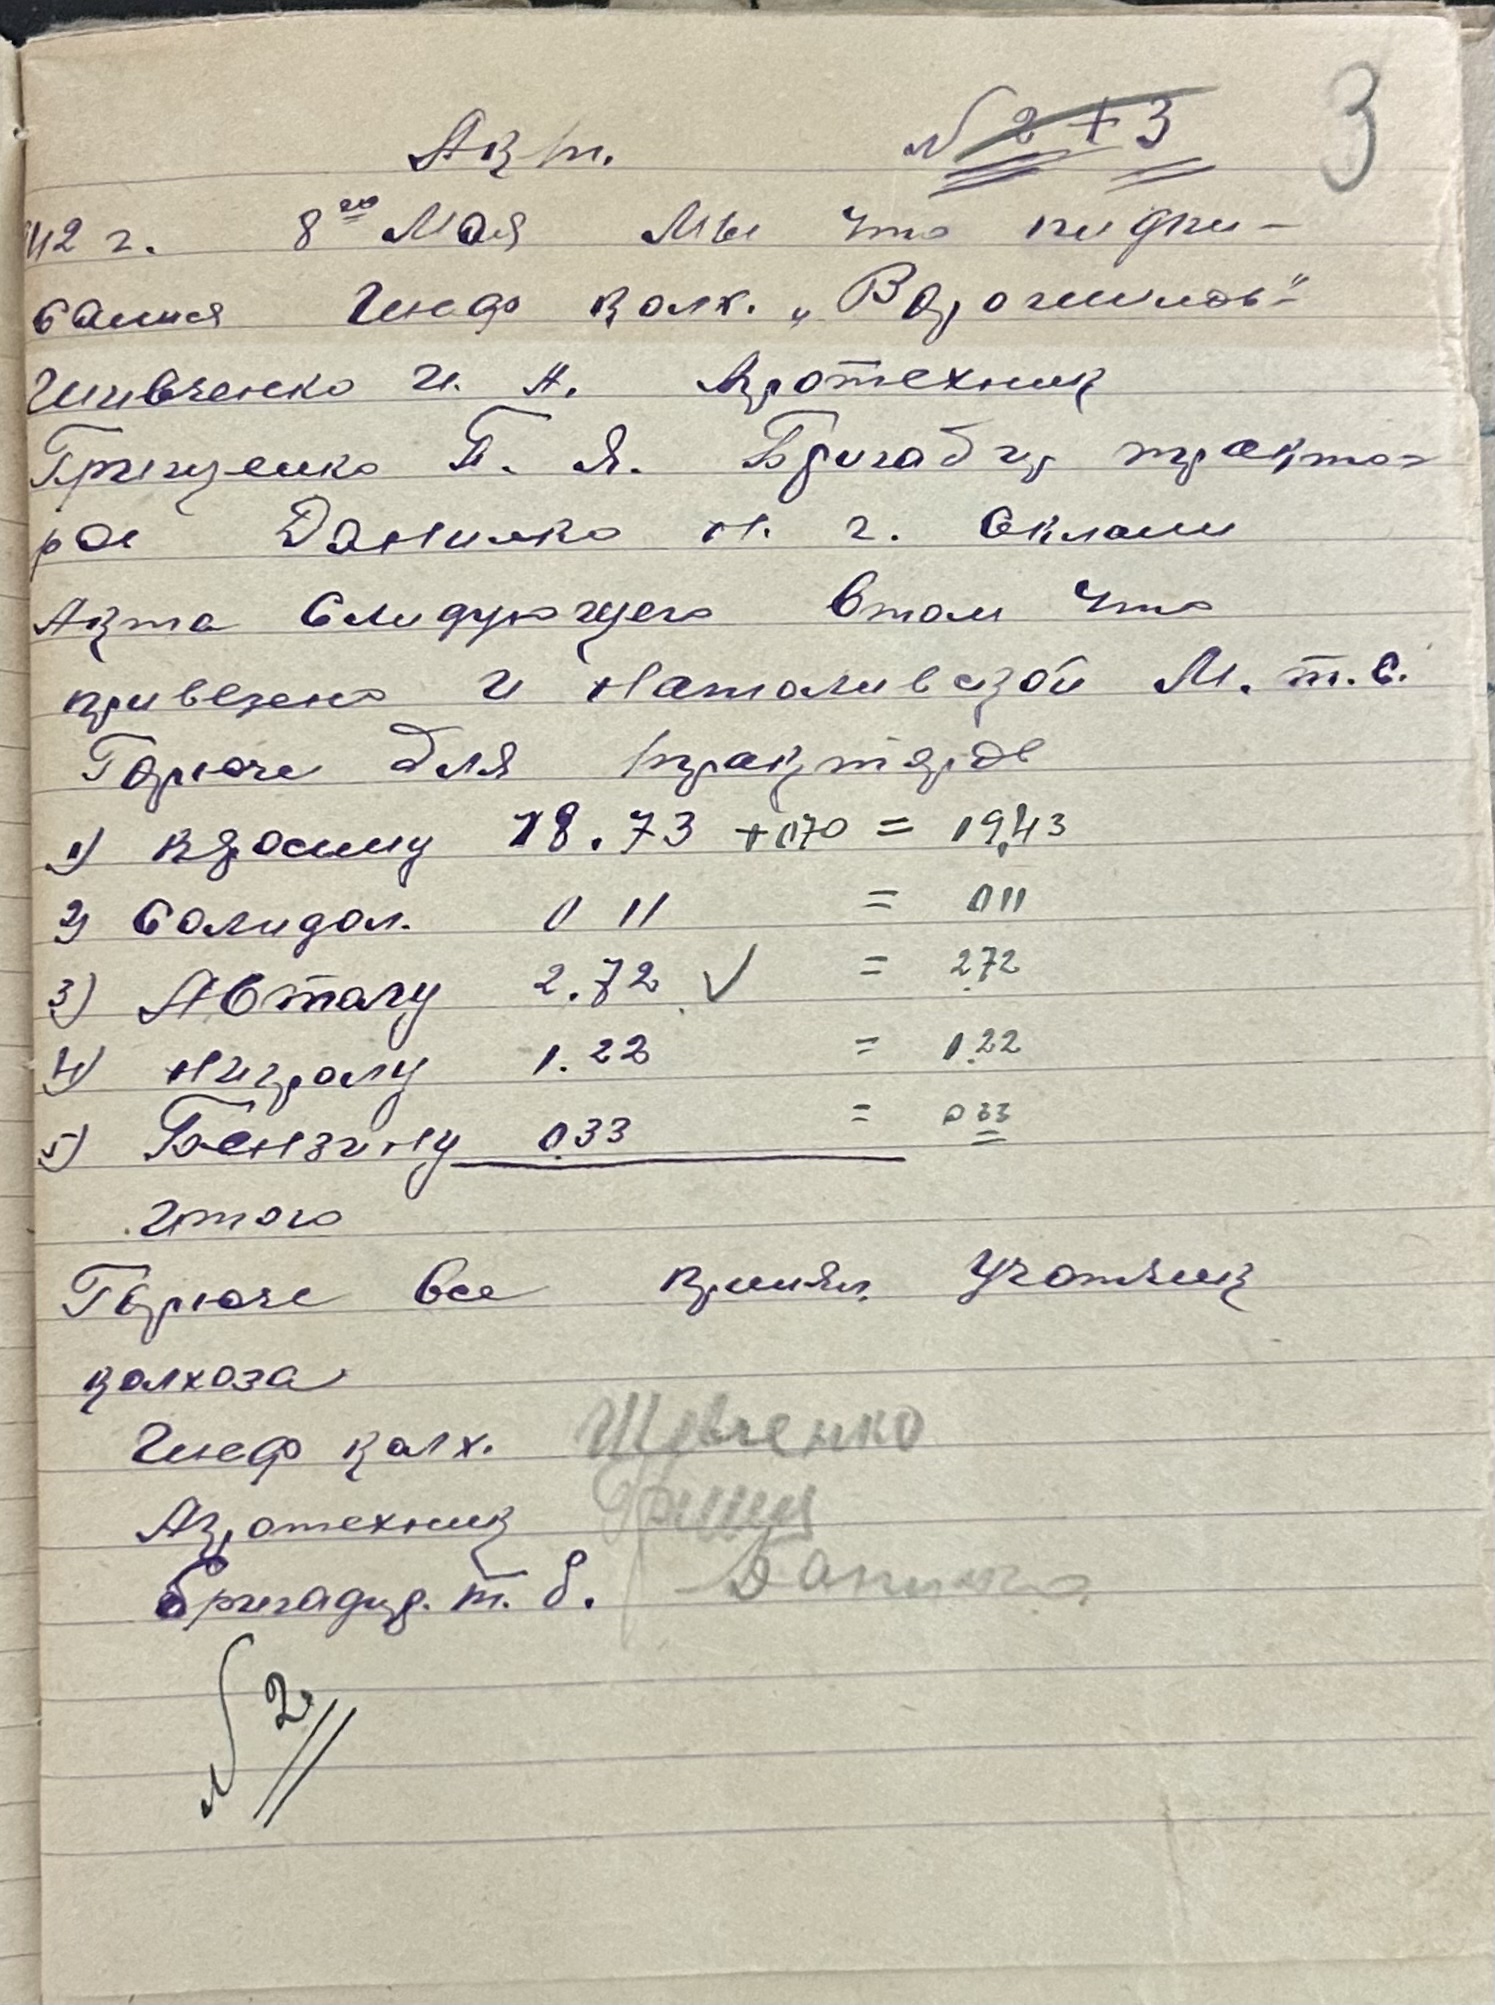 3
Акт. № 2+3
42 г. 8го Мая Мы что нидпи-
сания Шеф колх. „Ворошилов"
Шивченко И. А. Агротехник
Грищенко П. Я. Бригадир тракто-
ров Данилко Н. г. склали
Акта Слидующего втом что
привезено и Наталивской М. т. с.
Горюче для тракторов
1) Кяросину 18.73 +0,70 = 19,43
2) Солидол. 0 11 = 0 11
3) Автолу 2.72 ✓ = 2.72
4) Нигролу 1.22 = 1.22
5) Бензину 0.33 = 0 33
Итого
Горюче все принял учотчик
колхоза
Шеф колх. Шевченко
Агротехник Грищ
бригадир. т. б. Данилко
№ 2